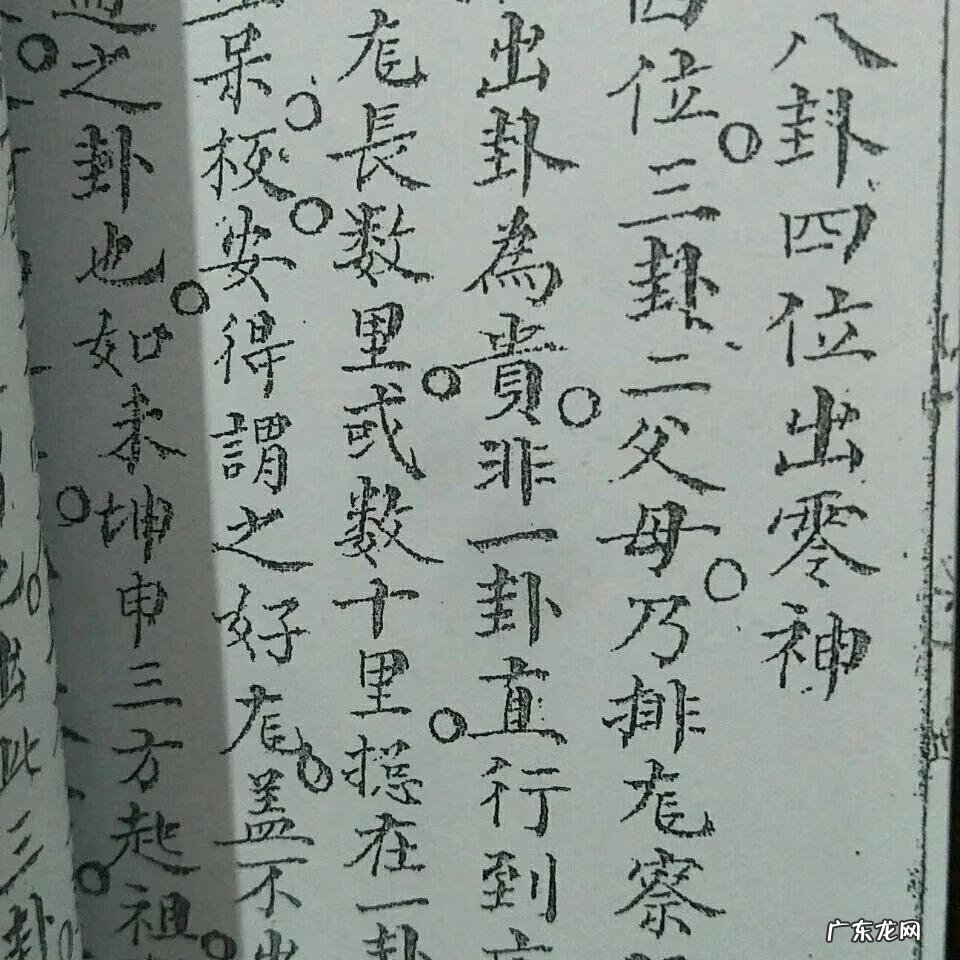 八卦四位出零神
四位三卦二父母乃排龙察
出卦為貴非一卦直行到
龙長数里或数十里摠在一卦
呆板安得謂之好龙盖不出
之卦也如未坤申三方起祖
此三卦
广东龙网